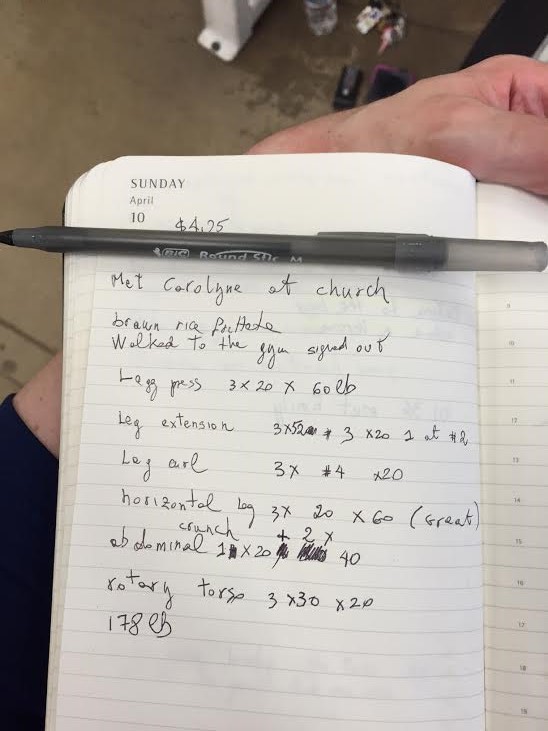 SUNDAY
April
10
$4.25
BIC Round Stic M
Met Carolyne at church
brown rice
Walked to the gym signed out
Legg press 3 x 20 x 60 lb
Leg extension 3 x # 3 x20 1 at #2
Leg curl 3x #4 x20
horizontal leg 3x 20 x 60 (Great)
crunch + 2 x
abdominal 1 x 20 40
rotary torso 3 x30 x20
178 lb
9
10
11
12
13
14
15
16
17
18
19